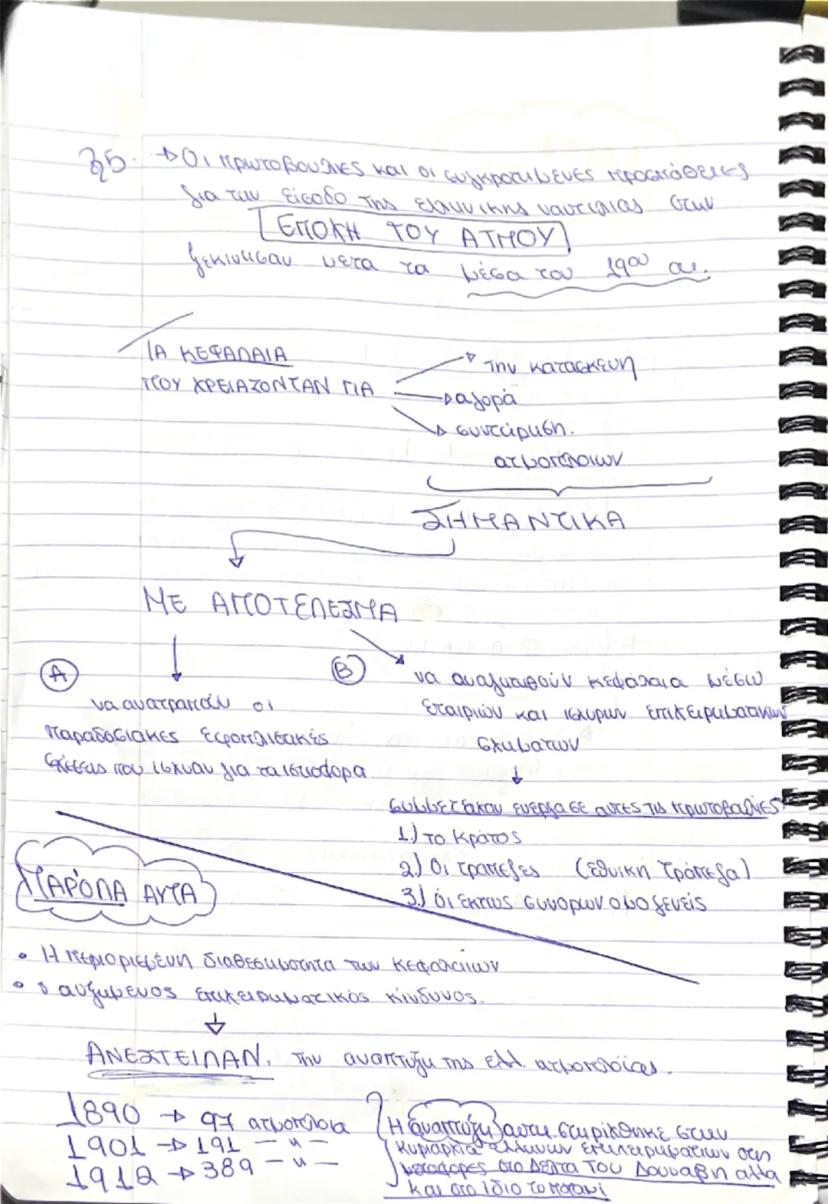 35. → Οι πρωτοβουλιες και οι συγκροτιμενες προσπάθειες
για την είσοδο της ελληνικης ναυτιλιας στην
ΕΠΟΧΗ ΤΟΥ ΑΤΜΟΥ
ξεκινησαν μετα τα μέσα του 19ου αι.
ΤΑ ΚΕΦΑΛΑΙΑ
ΠΟΥ ΧΡΕΙΑΖΟΝΤΑΝ ΓΙΑ
την κατασκευη
αγορά
συντήρηση.
ατμοπλοιων
ΣΗΜΑΝΤΙΚΑ
ΜΕ ΑΠΟΤΕΛΕΣΜΑ
Α
να ανατραπούν οι
παραδοσιακες εφοπλιστικές
σχέσεις που ισχυαν για τα ιστιοφορα
Β
να αναζητηθούν κεφάλαια μέσω
εταιριών και ισχυρων επιχειρηματικων
σχηματων
↓
συμμετείχαν ενεργα σε αυτες τις πρωτοβουλίες
1.) το Κράτος
2.) Οι τραπεζες (Εθνική Τράπεζα)
3.) οι εκτος συνορων ομογενείς
ΠΑΡΟΛΑ ΑΥΤΑ
• Η περιορισμένη διαθεσιμότητα των κεφαλαιων
• ο αυξημενος επιχειρηματικός κίνδυνος.
ΑΝΕΣΤΕΙΛΑΝ. την αναπτυξη της ελλ. ατμοπλοΐας.
1890 → 97 ατμοπλοια
1901 → 191 — " —
1912 → 389 — " —
Η αναπτυξη αυτη στηρίχθηκε στην
κυριαρχία ελληνων επιχειρηματιων στις
μεταφορες στο Δελτα του Δουναβη αλλα
και στο ίδιο το ποταμι